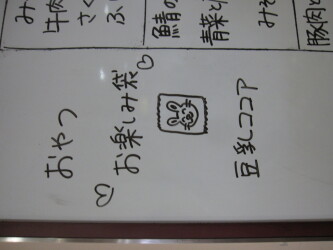 み
牛肉
さく
ふ
鯖の
青菜と
みそ
豚肉と
おやつ
♡お楽しみ袋♡
豆乳ココア